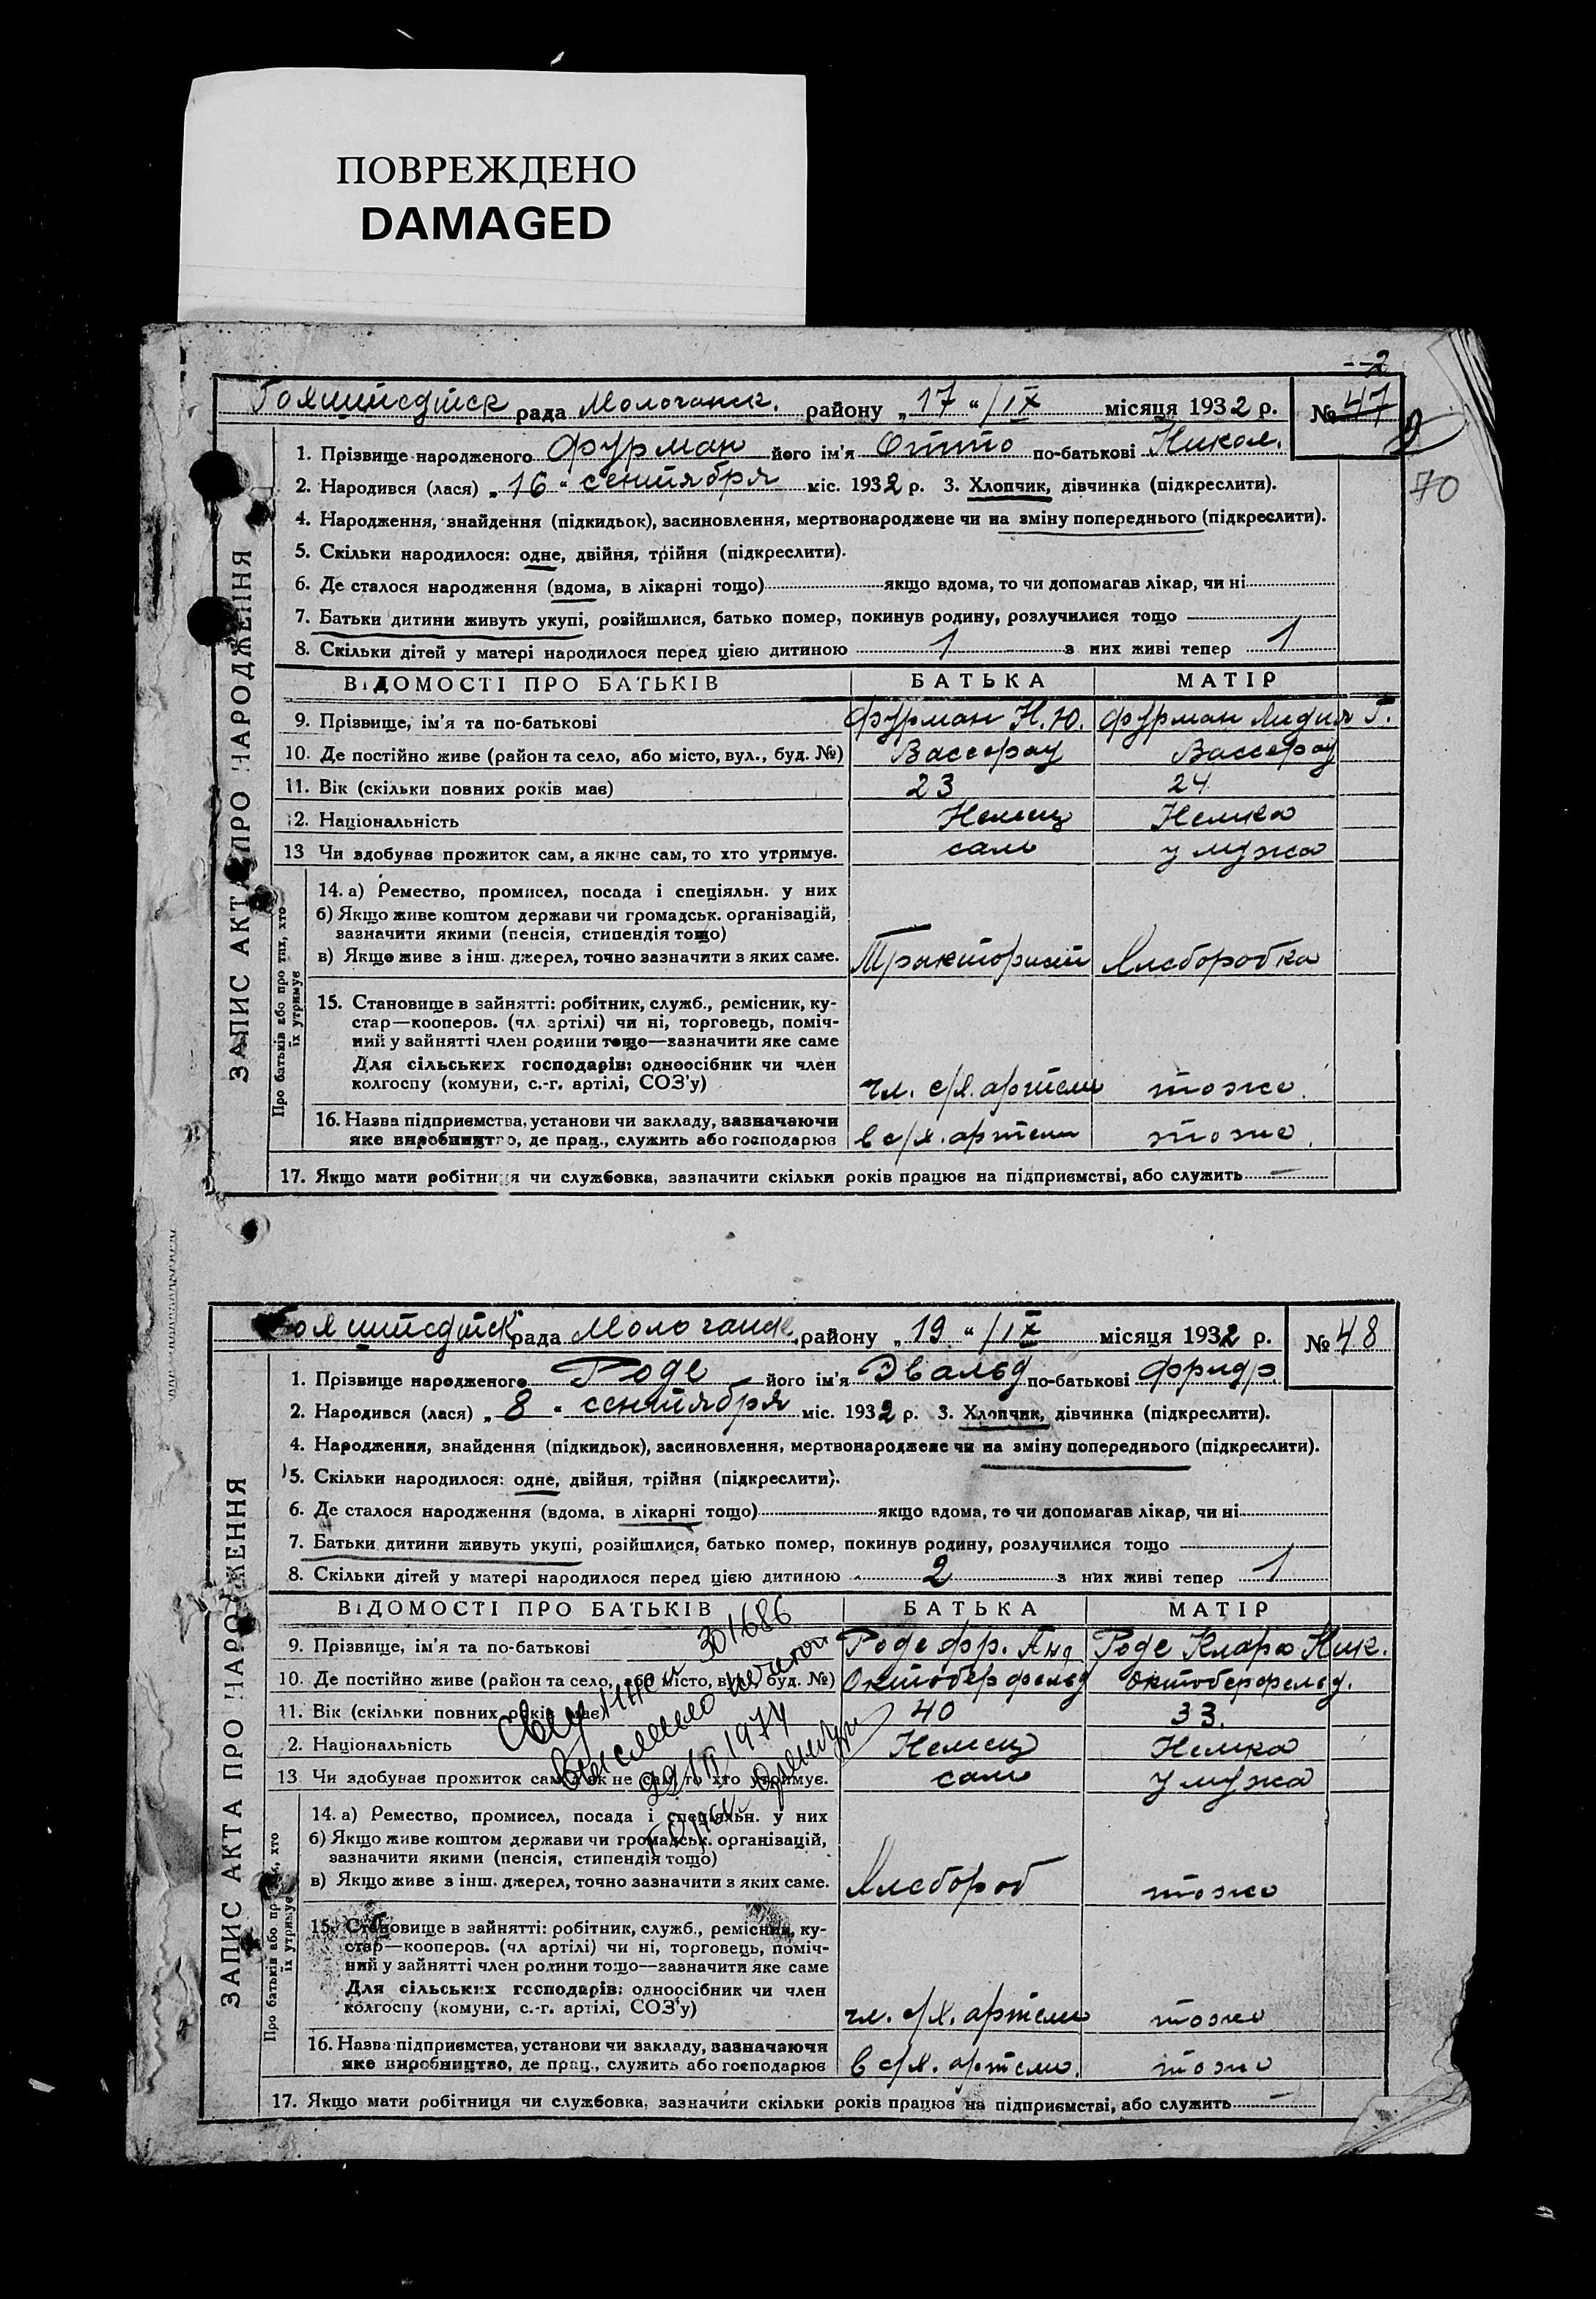 ПОВРЕЖДЕНО
DAMAGED
2
рада Молочанск. району „17“ /IX місяця 1932 р. № 47
70
1. Прізвище народженого Фурман його ім'я Отто по-батькові Никол.
2. Народився (лася) „16“ сентября міс. 1932 р. 3. Хлопчик, дівчинка (підкреслити).
4. Народження, знайдення (підкидьок), засиновлення, мертвонароджене чи на зміну попереднього (підкреслити).
5. Скільки народилося: одне, двійня, трійня (підкреслити).
6. Де сталося народження (вдома, в лікарні тощо) якщо вдома, то чи допомагав лікар, чи ні
7. Батьки дитини живуть укупі, розійшлися, батько помер, покинув родину, розлучилися тощо
8. Скільки дітей у матері народилося перед цією дитиною 1 з них живі тепер 1
ЗАПИС АКТА ПРО НАРОДЖЕННЯ
ВІДОМОСТІ ПРО БАТЬКІВ БАТЬКА МАТІР
9. Прізвище, ім'я та по-батькові Фурман Н. Ю. Фурман Лидия Г.
10. Де постійно живе (район та село, або місто, вул., буд. №) Вассерау Вассерау
11. Вік (скільки повних років має) 23 24
12. Національність Немец Немка
13 Чи здобуває прожиток сам, а як не сам, то хто утримує. сам у мужа
Про батьків або про тих, хто
їх утримує
14. а) Ремество, промисел, посада і спеціяльн. у них
б) Якщо живе коштом держави чи громадськ. організацій,
зазначити якими (пенсія, стипендія тощо)
в) Якщо живе з інш. джерел, точно зазначити з яких саме. Тракторист Хлеборобка
15. Становище в зайнятті: робітник, служб., ремісник, ку-
стар—кооперов. (чл артілі) чи ні, торговець, поміч-
ний у зайнятті член родини тощо—зазначити яке саме
Для сільських господарів: одноосібник чи член
колгоспу (комуни, с.-г. артілі, СОЗ'у) чл. с/х. артели тоже
16. Назва підприємства, установи чи закладу, зазначаючи
яке виробництво, де прац., служить або господарює в с/х. артели тоже
17. Якщо мати робітниця чи службовка, зазначити скільки років працює на підприємстві, або служить —
рада Молочанск. району „19“ /IX місяця 1932 р. № 48
1. Прізвище народженого Роде його ім'я Эвальд по-батькові Фридр.
2. Народився (лася) „8“ сентября міс. 1932 р. 3. Хлопчик, дівчинка (підкреслити).
4. Народження, знайдення (підкидьок), засиновлення, мертвонароджене чи на зміну попереднього (підкреслити).
5. Скільки народилося: одне, двійня, трійня (підкреслити).
6. Де сталося народження (вдома, в лікарні тощо) якщо вдома, то чи допомагав лікар, чи ні
7. Батьки дитини живуть укупі, розійшлися, батько помер, покинув родину, розлучилися тощо
8. Скільки дітей у матері народилося перед цією дитиною 2 з них живі тепер 1
ЗАПИС АКТА ПРО НАРОДЖЕННЯ
ВІДОМОСТІ ПРО БАТЬКІВ БАТЬКА МАТІР
9. Прізвище, ім'я та по-батькові Роде Фр. Анд Роде Клара Ник.
10. Де постійно живе (район та село, або місто, вул., буд. №) Октоберфельд Октоберфельд.
11. Вік (скільки повних років має) 40 33.
12. Національність Немец Немка
13 Чи здобуває прожиток сам, а як не сам, то хто утримує. сам у мужа
301686
1974
Про батьків або про тих, хто
їх утримує
14. а) Ремество, промисел, посада і спеціяльн. у них
б) Якщо живе коштом держави чи громадськ. організацій,
зазначити якими (пенсія, стипендія тощо)
в) Якщо живе з інш. джерел, точно зазначити з яких саме. Хлебороб тоже
15. Становище в зайнятті: робітник, служб., ремісник, ку-
стар—кооперов. (чл артілі) чи ні, торговець, поміч-
ний у зайнятті член родини тощо—зазначити яке саме
Для сільських господарів: одноосібник чи член
колгоспу (комуни, с.-г. артілі, СОЗ'у) чл. с/х. артели тоже
16. Назва підприємства, установи чи закладу, зазначаючи
яке виробництво, де прац., служить або господарює в с/х. артели. тоже
17. Якщо мати робітниця чи службовка, зазначити скільки років працює на підприємстві, або служить —